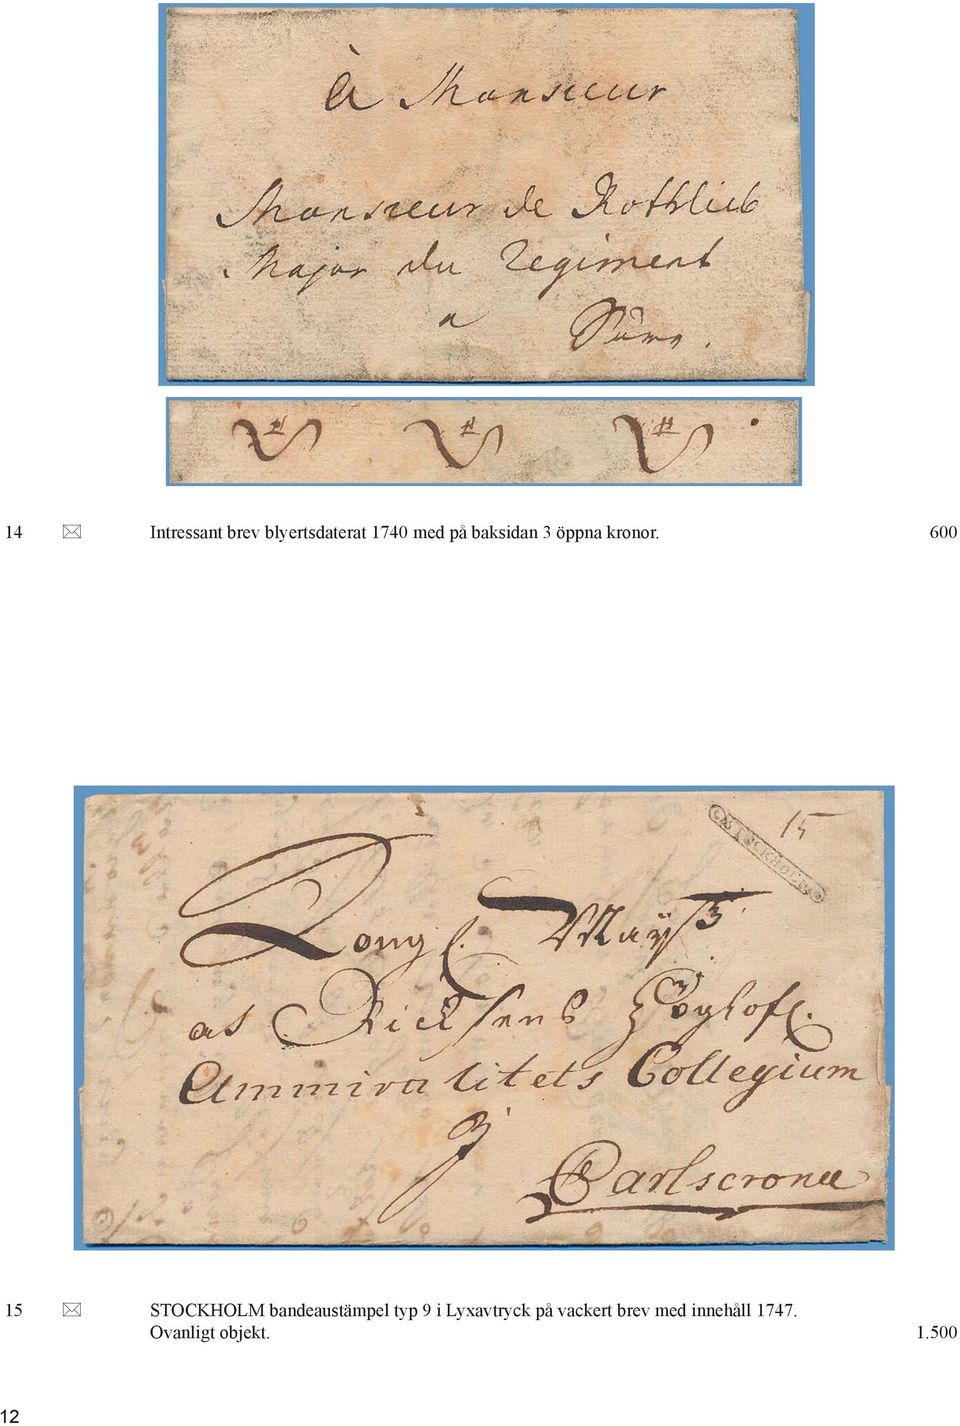 à Monsieur
Monsieur de Rothlieb
Major du Regiment
a
14 Intressant brev blyertsdaterat 1740 med på baksidan 3 öppna kronor. 600
STOCKHOLM 15
Kongl. Mayß
as Ricksens Höglofl.
Ammiralitets Collegium
Carlscrona
15 STOCKHOLM bandeaustämpel typ 9 i Lyxavtryck på vackert brev med innehåll 1747.
Ovanligt objekt. 1.500
12